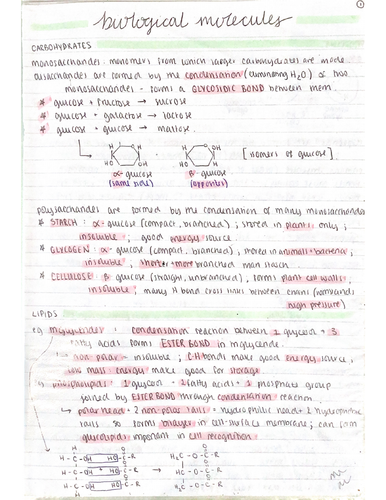 biological molecules
1
CARBOHYDRATES
monosaccharides: monomers from which larger carbohydrates are made
disaccharides are formed by the condensation (eliminating H₂O) of two
monosaccharides - forms a GLYCOSIDIC BOND between them.
* glucose + fructose → sucrose
* glucose + galactose → lactose
* glucose + glucose → maltose.
H H H OH
OH OH OH H
α-glucose β-glucose [isomers of glucose]
(same side) (opposites)
polysaccharides are formed by the condensation of many monosaccharides
* STARCH: α-glucose (compact, branched); stored in plants only;
insoluble; good energy source
* GLYCOGEN: α-glucose (compact, branched), stored in animals + bacteria;
insoluble, shorter + more branched than starch
* CELLULOSE: β glucose (straight, unbranched), forms plant cell walls,
insoluble; many H bond cross links between chains (withstands
high pressure)
LIPIDS
eg triglycerides: condensation reaction between 1 glycerol + 3
fatty acids forms ESTER BOND in triglyceride.
↳ non polar - insoluble; C-H bonds make good energy source,
low mass : energy make good for storage
phospholipids: 1 glycerol + 2 fatty acids + 1 phosphate group
joined by ESTER BOND through condensation reaction.
↳ polar head + 2 non polar tails = hydrophilic head + 2 hydrophobic
tails so forms bilayer in cell-surface membrane; can form
glycolipids important in cell recognition
H O O
H-C-OH HO-C-R H₂C-O-C-R
H-C-OH + HO-C-R → HC-O-C-R
H-C-OH HO-C-R H₂C-O-C-R
H